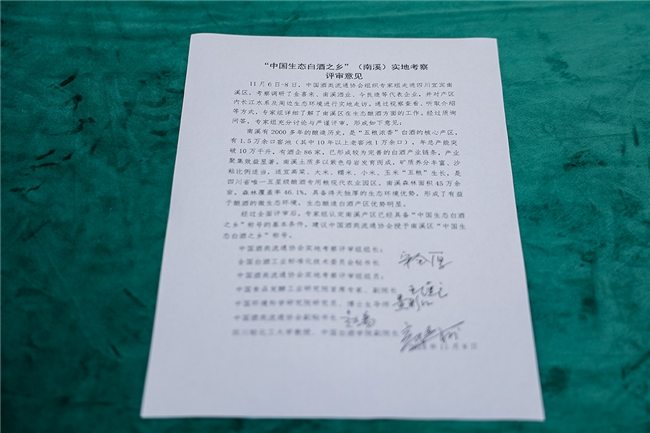 “中国生态白酒之乡”（南溪）实地考察
评审意见
11月6日-8日，中国酒类流通协会组织专家组走进四川宜宾南
溪区，考察调研了金喜来、南溪酒业、今良造等代表企业，并对产区
内长江水系及周边生态环境进行实地走访。通过视察查看、听取介绍
等方式，专家组详细了解了南溪区在生态酿酒方面的工作。经过质询
问答，专家组充分讨论与严谨评审，形成如下意见：
南溪有2000多年的酿造历史，是“五粮浓香”白酒的核心产区，
有1.5万余口窖池（其中10年以上老窖池1万余口），年总产能突
破10万千升，有酒企86家，已形成较为完善的白酒产业链条，产业
聚集效益显著。南溪土质多以紫色母岩发育而成，矿质养分丰富、沙
粘比例适当，适宜高粱、大米、糯米、小米、玉米“五粮”生长，是
四川省唯一五星级酿酒专用粮现代农业园区。南溪森林面积45万余
亩，森林覆盖率46.1%，具备得天独厚的生态环境优势，形成了有益
于酿酒的微生态环境，生态酿造白酒产区优势明显。
经过全面评审后，专家组认定南溪产区已经具备“中国生态白酒
之乡”称号的基本条件，建议中国酒类流通协会授予南溪区“中国生
态白酒之乡”称号。
中国酒类流通协会实地考察评审组组长：
全国白酒工业标准化技术委员会秘书长
中国酒类流通协会实地考察评审组组员：
中国食品发酵工业研究院首席专家、副院长
中国环境科学研究院研究员、博士生导师
中国酒类流通协会副秘书长
四川轻化工大学教授、中国白酒学院副院长
年11月8日